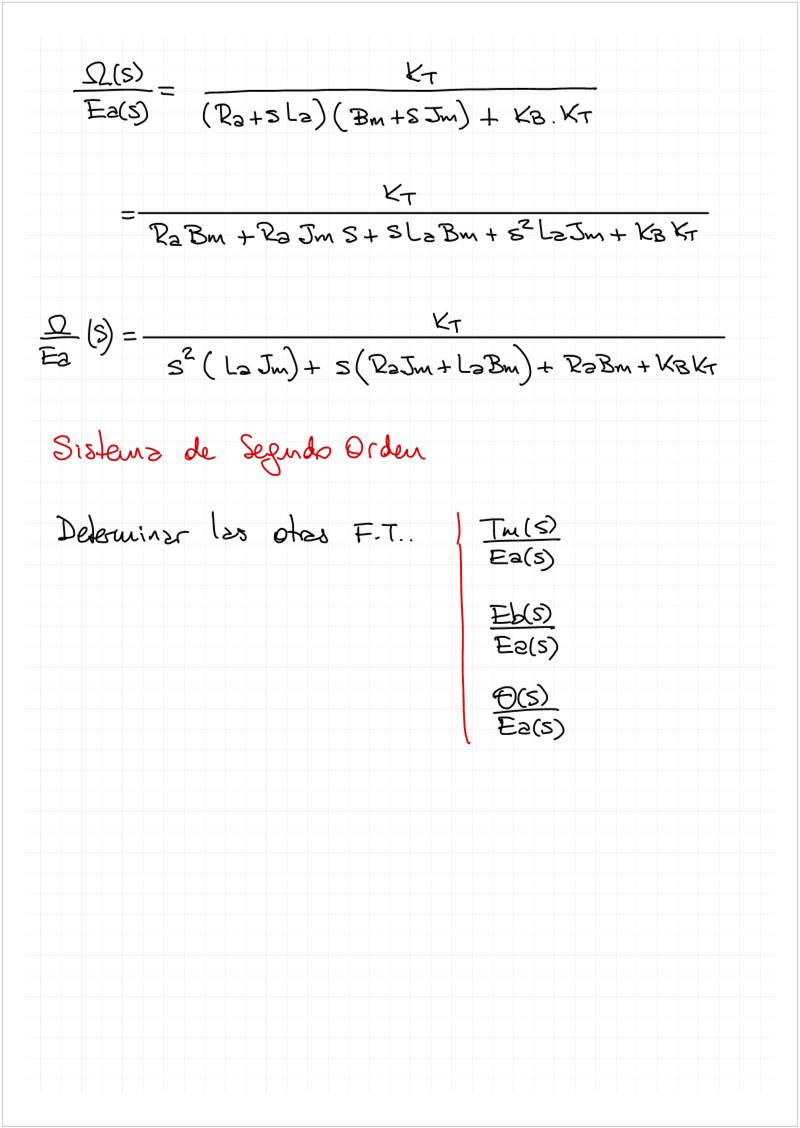 Ω(s)/Ea(s) = KT / (Ra+sLa)(Bm+sJm) + KB.KT
= KT / RaBm + RaJm s + sLaBm + s²LaJm + KBKT
Ω/Ea (s) = KT / s²(LaJm) + s(RaJm+LaBm) + RaBm + KBKT
Sistema de Segundo Orden
Determinar las otras F.T..
Tm(s)/Ea(s)
Eb(s)/Ea(s)
Θ(s)/Ea(s)